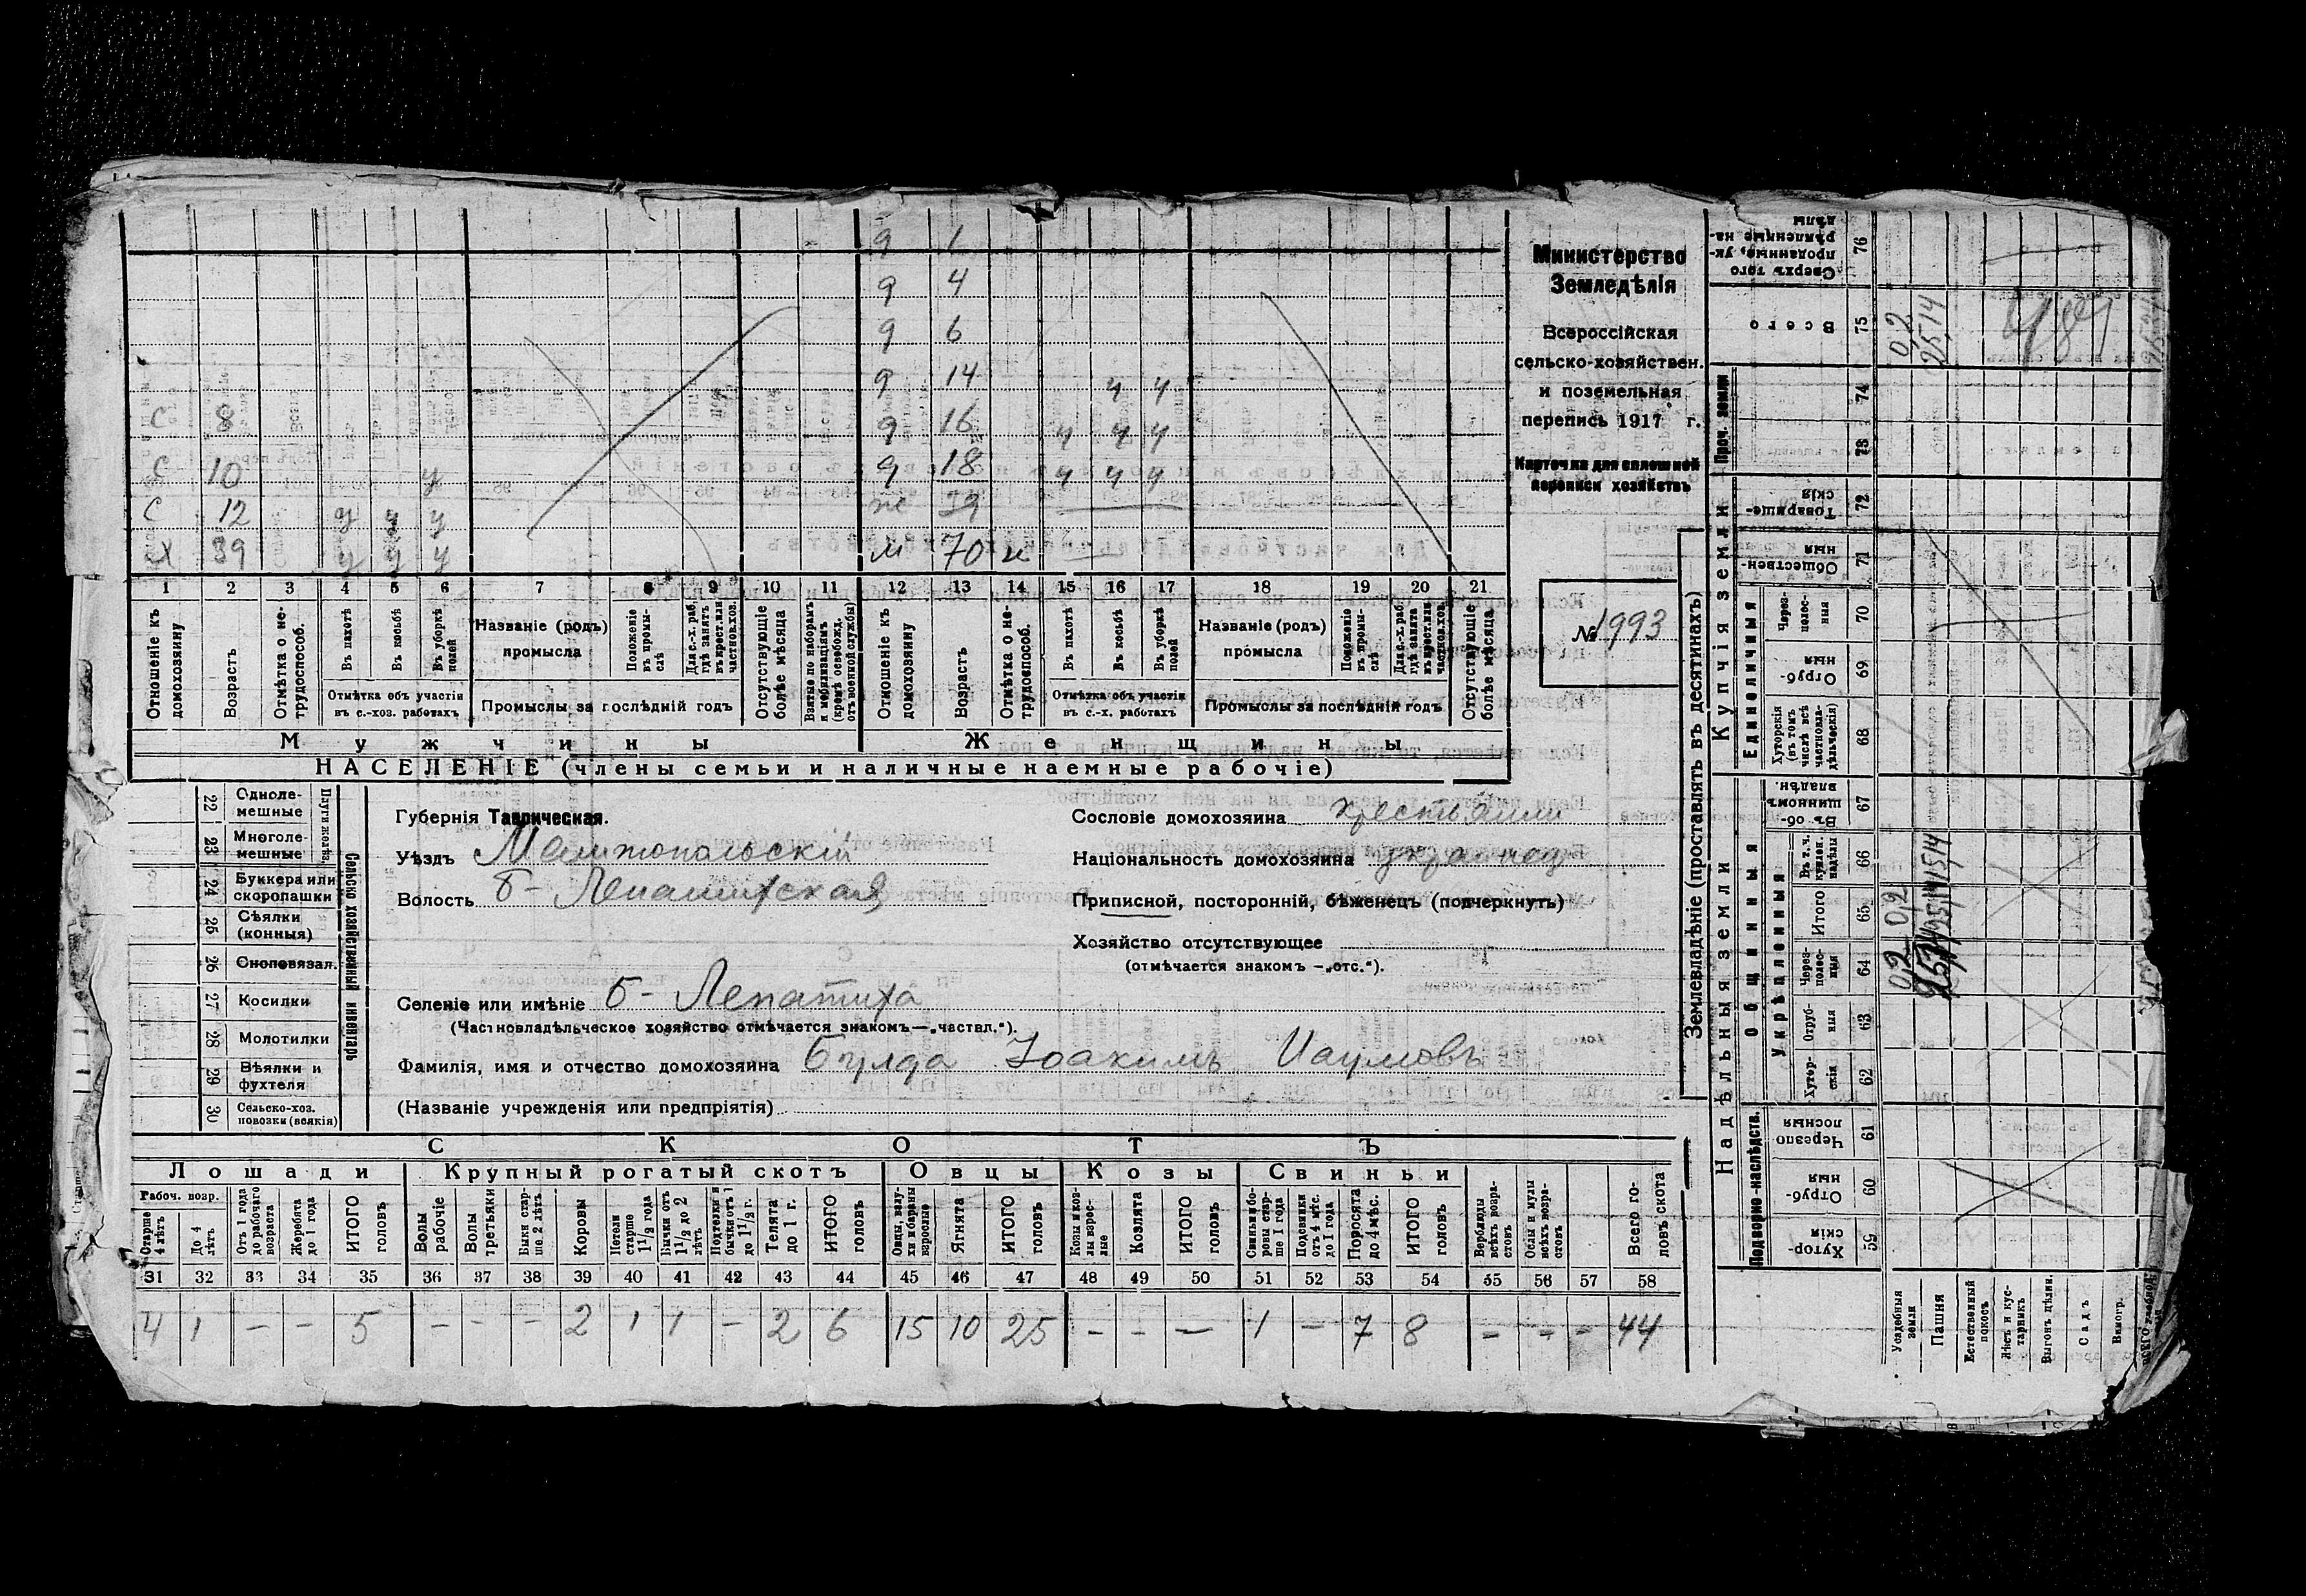 9 1
9 4
9 6
9 14 ч ч
С 8 9 16 ч ч ч
С 10 у 9 18 ч ч ч
С 12 у у у ж
Х 39 у у у м 70 н
1 2 3 4 5 6 7 8 9 10 11 12 13 14 15 16 17 18 19 20 21
Отношеніе къ домохозяину
Возрастъ
Отмѣтка о нетрудоспособ.
Въ пахотѣ
Въ косьбѣ
Въ уборкѣ полей
Отмѣтка объ участіи въ с.-хоз. работахъ
Названіе (родъ) промысла
Положеніе въ промыслѣ
Для с.-х. раб. гдѣ занятъ въ крест. или частнов. хоз.
Промыслы за послѣдній годъ
Отсутствующіе болѣе мѣсяца
Взятые по наборамъ и мобилизаціямъ (кромѣ освобожд. отъ военной службы)
Отношеніе къ домохозяину
Возрастъ
Отмѣтка о нетрудоспособ.
Въ пахотѣ
Въ косьбѣ
Въ уборкѣ полей
Отмѣтка объ участіи въ с.-х. работахъ
Названіе (родъ) промысла
Положеніе въ промыслѣ
Для с.-х. раб. гдѣ занята въ крест. или частнов. хоз.
Промыслы за послѣдній годъ
Отсутствующіе болѣе мѣсяца
Мужчины Женщины
НАСЕЛЕНІЕ (члены семьи и наличные наемные рабочіе)
Министерство
Земледѣлія
Всероссійская
сельско-хозяйствен.
и поземельная
перепись 1917 г.
Карточка для сплошной
переписи хозяйствъ
№ 1993
Сельско хозяйственный инвентарь
22 Однолемешные
23 Многолемешные
24 Буккера или скоропашки
25 Сѣялки (конныя)
26 Сноповязал.
27 Косилки
28 Молотилки
29 Вѣялки и фухтеля
30 Сельско-хоз. повозки (всякія)
Губернія Таврическая.
Уѣздъ Мелитопольскій
Волость Б- Лепатихская
Селеніе или имѣніе Б- Лепатиха
(Частновладѣльческое хозяйство отмѣчается знакомъ—„частвл.“).
Фамилія, имя и отчество домохозяина Булда Іоакимъ Наумовъ
(Названіе учрежденія или предпріятія)
Сословіе домохозяина крестьянин
Національность домохозяина
Приписной, посторонній, бѣженецъ (подчеркнуть)
Хозяйство отсутствующее
(отмѣчается знакомъ —„отс.“).
СКОТЪ
Лошади Крупный рогатый скотъ Овцы Козы Свиньи
Рабоч. возр.
Старше 4 лѣтъ
До 4 лѣтъ
Отъ 1 года до рабочаго возраста
Жеребята до 1 года
ИТОГО головъ
Волы рабочіе
Волы третьяки
Быки старше 2 лѣтъ
Коровы
Нетели старше 1 1/2 года
Бычки отъ 1 1/2 до 2 лѣтъ
Подтелки и бычки отъ 1 до 1 1/2 г.
Телята до 1 г.
ИТОГО головъ
Овцы, валухи и бараны взрослые
Ягнята
ИТОГО головъ
Козы и козлы взрослые
Козлята
ИТОГО головъ
Свиньи и боровы старше 1 года
Подсвинки отъ 4 мѣс. до 1 года
Поросята до 4 мѣс.
ИТОГО головъ
Верблюды всѣхъ возрастовъ
Ослы и мулы всѣхъ возрастовъ
Всего головъ скота
31 32 33 34 35 36 37 38 39 40 41 42 43 44 45 46 47 48 49 50 51 52 53 54 55 56 57 58
4 1 - - 5 - - - 2 1 1 - 2 6 15 10 25 - - - 1 - 7 8 - - - 44
Землевладѣніе (проставлять въ десятинахъ)
Надѣльныя земли Купчія земли Проч. земли
Подворно-наслѣдств.
Общинныя
Укрѣпленныя
Единоличныя
59 Хуторскія
60 Отрубныя
61 Черезполосныя
62 Хуторскія
63 Отрубныя
64 Черезполосныя
65 Итого
66 Въ т. ч. куплен. надѣлы
67 Въ общинномъ владѣн.
68 Хуторскія (въ томъ числѣ всѣ частновладѣльческія)
69 Отрубныя
70 Черезполосныя
71 Общественныя
72 Товарищескія
73
74
75 Всего
76 Сверхъ того проданные, укрѣпленные надѣлы
Усадебныя земли 0,2 0,2 0,2
Пашня 25,14
Естественный покосъ
Лѣсъ и кустарникъ
Выгонъ дѣлин.
Садъ
Вивогр.